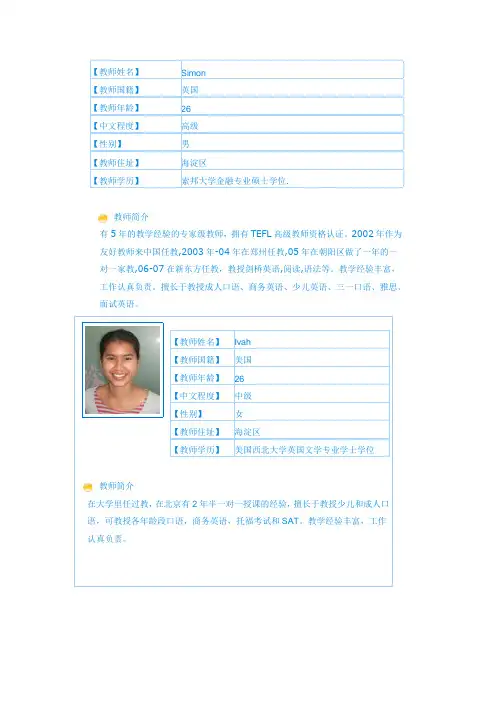 【教师姓名】 Simon
【教师国籍】 英国
【教师年龄】 26
【中文程度】 高级
【性别】 男
【教师住址】 海淀区
【教师学历】 索邦大学金融专业硕士学位.
教师简介
有5年的教学经验的专家级教师，拥有TEFL高级教师资格认证。2002年作为
友好教师来中国任教,2003年-04年在郑州任教,05年在朝阳区做了一年的一
对一家教,06-07在新东方任教，教授剑桥英语,阅读,语法等。教学经验丰富，
工作认真负责。擅长于教授成人口语、商务英语、少儿英语、三一口语、雅思、
面试英语。
【教师姓名】 Ivah
【教师国籍】 美国
【教师年龄】 26
【中文程度】 中级
【性别】 女
【教师住址】 海淀区
【教师学历】 美国西北大学英国文学专业学士学位
教师简介
在大学里任过教，在北京有2年半一对一授课的经验，擅长于教授少儿和成人口
语，可教授各年龄段口语，商务英语、托福考试和SAT。教学经验丰富，工作
认真负责。